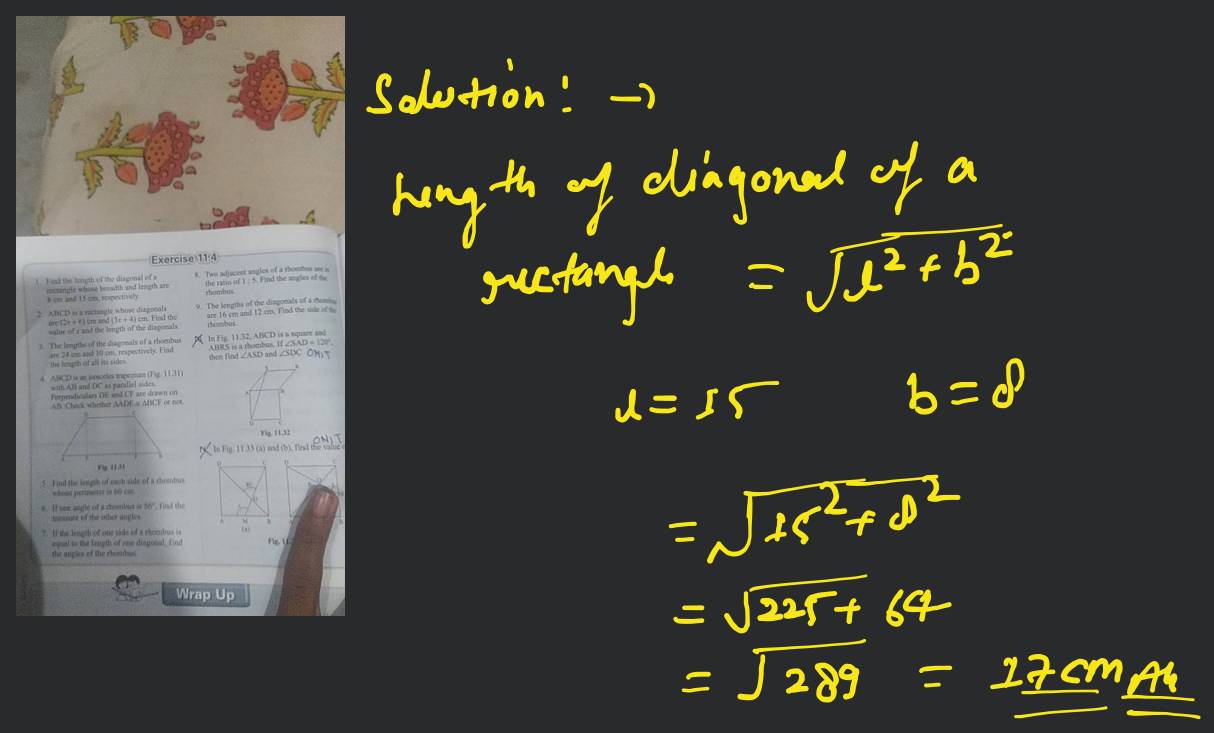 Exercise 11.4
1. Find the length of the diagonal of a
rectangle whose breadth and length are
8 cm and 15 cm, respectively.
2. ABCD is a rectangle whose diagonals
are (2x + 6) cm and (3x + 4) cm. Find the
value of x and the length of the diagonals.
3. The lengths of the diagonals of a rhombus
are 24 cm and 10 cm, respectively. Find
the length of all its sides.
4. ABCD is an isosceles trapezium (Fig. 11.31)
with AB and DC as parallel sides.
Perpendiculars DE and CF are drawn on
AB. Check whether ΔADE ≅ ΔBCF or not.
Fig. 11.31
5. Find the length of each side of a rhombus
whose perimeter is 60 cm.
6. If one angle of a rhombus is 56°, find the
measure of the other angles.
7. If the length of one side of a rhombus is
equal to the length of one diagonal, find
the angles of the rhombus.
8. Two adjacent angles of a rhombus are in
the ratio of 1 : 5. Find the angles of the
rhombus.
9. The lengths of the diagonals of a rhombus
are 16 cm and 12 cm. Find the side of the
rhombus.
In Fig. 11.32, ABCD is a square and
ABRS is a rhombus. If ∠SAD = 120°,
then find ∠ASD and ∠SDC OMIT
Fig. 11.32
OMIT
In Fig. 11.33 (a) and (b), find the value
D C D C
A M B
(a)
Fig.
Wrap Up
Solution: →
Length of diagonal of a
rectangle = √l² + b²
l = 15 b = 8
= √15² + 8²
= √225 + 64
= √289 = 17 cm